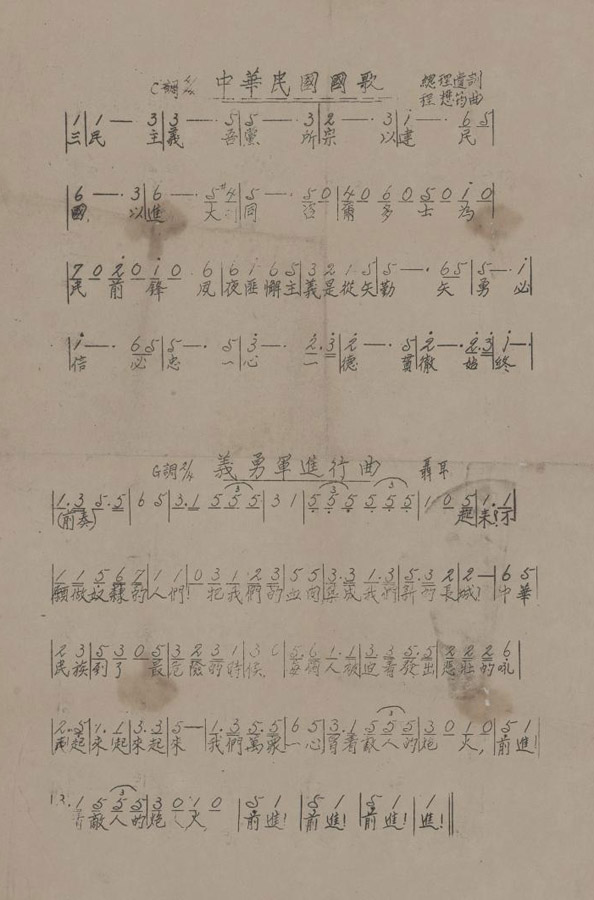 C調 4/4 中華民國國歌 總理遺訓
程懋筠曲
1 | 1 — · 3 | 3 — · 5 | 5 — · 3 | 2 — · 3 | i — · 6 5 |
三 民 主 義 吾 黨 所 宗 以 建 民
6 — · 3 | 6 — · 5 #4 | 5 — · 5 0 | 4 0 6 0 5 0 i 0 |
國, 以 進 大 同 咨 爾 多 士 為
7 0 2 0 i 0 6 | 6 i 6 5 | 3 2 1 5 | 5 — · 6 5 | 5 — · i
民 前 鋒 夙 夜匪懈主義是從矢勤 矢 勇 必
i — · 6 5 | 5 — · 5 | 3 — · 2 . 3 | 2 — · 5 | 2 — · 2 . 3 | i — ·
信 必 忠 一 心 一 德 貫 徹 始 終
G調 2/4 義勇軍進行曲 聶耳
1 . 3 5 . 5 | 6 5 | 3 . 1 5 5 5 | 3 1 | 5 5 5 5 5 5 | 1 0 5 | 1 . 1
(前奏) 起來!不
1 1 5 6 7 | 1 1 | 0 3 1 2 3 | 5 5 | 3 . 3 1 . 3 | 5 . 3 2 | 2 — | 6 5
願做奴隸的人們! 把我們的血肉築成我們新的長城! 中華
2 3 | 5 3 0 5 | 3 2 3 1 | 3 0 | 5 . 6 1 . 1 | 3 . 3 5 . 5 | 2 2 2 6
民族到了 最危險的時候 每個人被迫着發出悲壯的吼
2 . 5 | 1 . 1 | 3 . 3 | 5 — | 1 . 3 5 . 5 | 6 5 | 3 . 1 5 5 5 | 3 0 1 0 | 5 1
起來!起來起來 我們萬衆一心冒着敵人的炮 火, 前進!
1 5 5 5 | 3 0 1 0 | 5 1 | 5 1 | 5 1 | 1
敵人的炮 火 前進! 前進! 前進! 進!